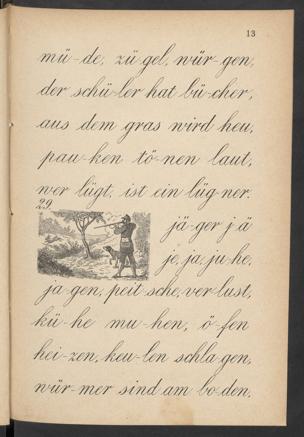 13
mü-de, zü-gel, wür-gen,
der schü-ler hat bü-cher,
aus dem gras wird heu,
pau-ken tö-nen laut,
wer lügt, ist ein lüg-ner.
29.
jä-ger j ä
je, ja, ju-he,
ja-gen, peit-sche, ver-lust,
kü-he mu-hen, ö-fen
hei-zen, keu-len schla-gen,
wür-mer sind am bo-den,